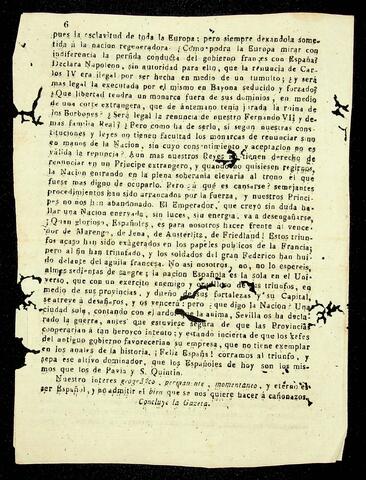 6
pues la esclavitud de toda la Europa; pero siempre dexandola some-
tida á la nacion regeneradora. ¿Cómo podra la Europa mirar con
indiferencia la perfida conducta del gobierno frances con España?
Declara Napoleon, sin autoridad para ello, que la renuncia de Car-
los IV era ilegal por ser hecha en medio de un tumulto; ¿y será
mas legal la executada por el mismo en Bayona seducido y forzado?
¿Que libertad tendra un monarca fuera de sus dominios, en medio
de una corte extrangera, que de antemano tenia jurada la ruina de
los Borbones? ¿Será legal la renuncia de nuestro Fernando VII y de-
mas familia Real? ¿Pero como ha de serlo, si segun nuestras cons-
tituciones y leyes no tienen facultad los monarcas de renunciar sino
en manos de la Nacion, sin cuyo consentimiento y aceptacion no es
válida la renuncia? Aun mas nuestros Reyes tienen derecho de
renunciar en un Principe extrangero, y quando quisiesen regirnos,
la Nacion entrando en la plena soberania elevaria al trono él que
fuese mas digno de ocuparlo. Pero ¿á qué es cansarse? semejantes
procedimientos han sido arrancados por la fuerza, y nuestros Princi-
pes no nos han abandonado. El Emperador, que creyó sin duda ha-
llar una Nacion enervada, sin luces, sin energia, va á desengañarse.
¡Quan glorioso, Españoles, es para nosotros hacer frente al vence-
dor de Marengo, de Jena, de Austerlitz, de Friedland! Estos triun-
fos acaso han sido exâgerados en los papeles públicos de la Francia;
pero al fin han triunfado, y los soldados del gran Federico han hui-
do delante del aguila francesa. No asi nosotros, no, no lo espereis,
almas sedientas de sangre; la nacion Española es la sola en el Uni-
verso, que con un exercito enemigo y orgulloso de sus triunfos, en
medio de sus provincias, y dueño de sus fortalezas y su Capital,
se atreve á desafiaros, y os vencerá: pero ¿que digo la Nacion? Una
ciudad sola, contando con el ardor que la anima, Sevilla os ha decla-
rado la guerra, antes que estuviese segura de que las Provincias
cooperarian á tan heroico intento; y estando incierta de que los xefes
del antiguo gobierno favorecerian su empresa, que no tiene exemplar
en los anales de la historia. ¡Feliz España! corramos al triunfo, y
sepa ese altivo dominador, que los Españoles de hoy son los mis-
mos que los de Pavia y S. Quintin.
Nuestro interes geográfico, permanente, momentaneo, y eterno es
ser Español, y no admitir el bien que se nos quiere hacer á cañonazos.
Concluye la Gazeta.